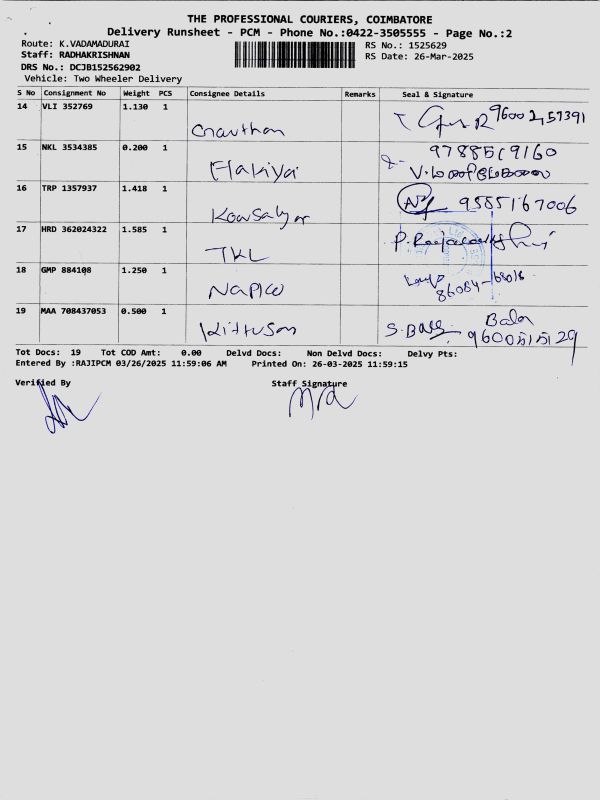 THE PROFESSIONAL COURIERS, COIMBATORE
Delivery Runsheet - PCM - Phone No.:0422-3505555 - Page No.:2
Route: K.VADAMADURAI
RS No.: 1525629
Staff: RADHAKRISHNAN
RS Date: 26-Mar-2025
DRS No.: DCJB152562902
Vehicle: Two Wheeler Delivery
S No Consignment No Weight PCS Consignee Details Remarks Seal & Signature
14 VLI 352769 1.130 1
15 NKL 3534385 0.200 1
9788519160
16 TRP 1357937 1.418 1
Kowsalya 9585167006
17 HRD 362024322 1.585 1
TKL
18 GMP 884108 1.250 1
Napco 86084-68016
19 MAA 708437053 0.500 1
Bala
Kittusam S. Bala 9600515129
Tot Docs: 19 Tot COD Amt: 0.00 Delvd Docs: Non Delvd Docs: Delvy Pts:
Entered By :RAJIPCM 03/26/2025 11:59:06 AM Printed On: 26-03-2025 11:59:15
Verified By Staff Signature